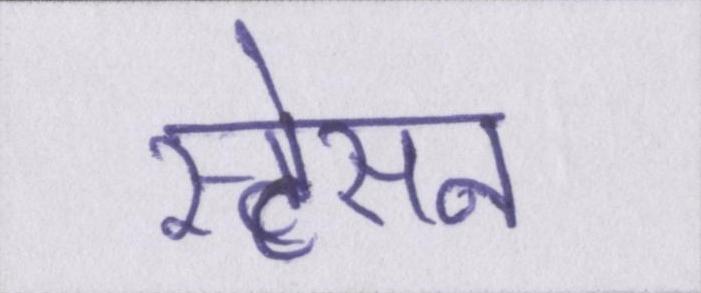 स्टेसन